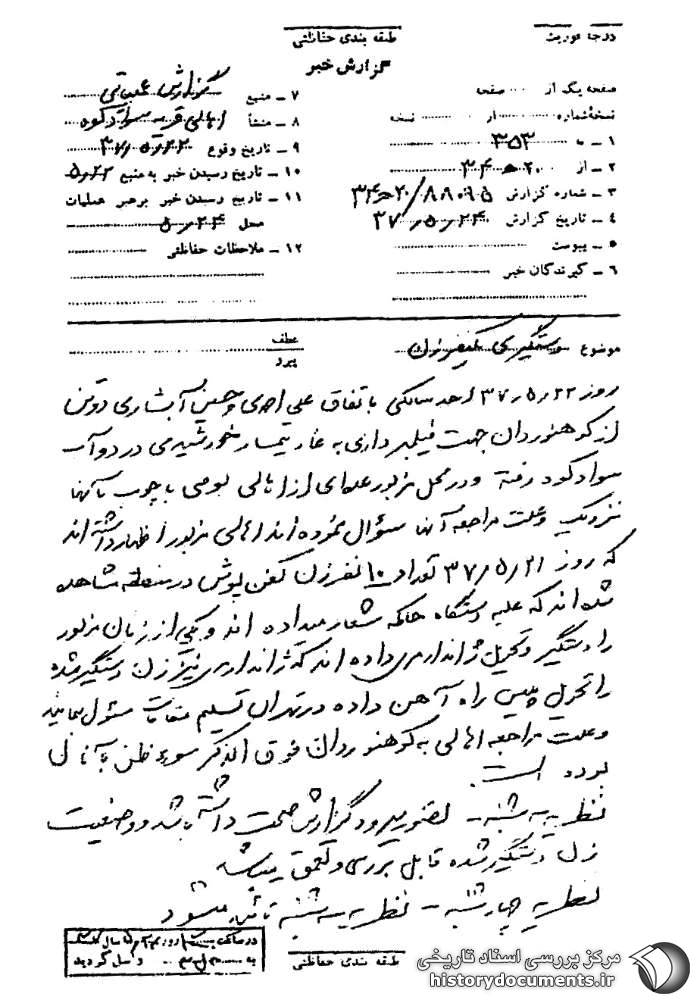 درجه فوریت
طبقه بندی حفاظتی
گزارش خبر
صفحه یک از ...... صفحه
نسخه شماره ...... از ...... نسخه
۱ - به ۳۵۳
۲ - از ۲۰ ه ۳۴
۳ - شماره گزارش ۸۸۰۹۵ / ۲۰ ه ۳۴
۴ - تاریخ گزارش ۲۴ ر ۵ ر ۳۷
۵ - پیوست
۶ - گیرندگان خبر
۷ - منبع گزارش عملیاتی
۸ - منشأ اهالی قریه سوادکوه
۹ - تاریخ وقوع ۲۲ ر ۵ ر ۳۷
۱۰ - تاریخ رسیدن خبر به منبع ۲۲ ر ۵
۱۱ - تاریخ رسیدن خبر برهبر عملیات
محل ۲۴ ر ۵
۱۲ - ملاحظات حفاظتی
موضوع دستگیری یکنفر زن
عطف
پیرو
روز ۲۲ ر ۵ ر ۳۷ احمد باتفاق علی احدی و حسین آبشاری دوتن
از کوهنوردان جهت فیلمبرداری به غار تیمسار خورشیدی در دوآب
سوادکوه رفته و در محل مزبور عده‌ای از اهالی بومی با چوب بآنها
نزدیک و علت مراجعه آنها سئوال نموده اند اهالی مزبور اظهار داشته اند
که روز ۲۱ / ۵ / ۳۷ تعداد ۱۰ نفر زن کفن پوش در منطقه مشاهده
شده اند که علیه دستگاه حاکمه شعار میداده اند و یکی از زنان مزبور
را دستگیر و تحویل ژاندارمری داده اند که ژاندارمری نیز زن دستگیر شده
را تحویل پلیس راه آهن داده در تهران تسلیم مقامات مسئول نمایند
و علت مراجعه اهالی به کوهنوردان فوق الذکر سوء ظن بآنان
بوده است.
نظریه سه شنبه - تصور میرود گزارش صحت داشته باشد و وضعیت
زن دستگیر شده قابل بررسی و تعمق میباشد
نظریه چهارشنبه - نظریه سه شنبه تائید میشود
طبقه بندی حفاظتی
مرکز بررسی اسناد تاریخی
historydocuments.ir